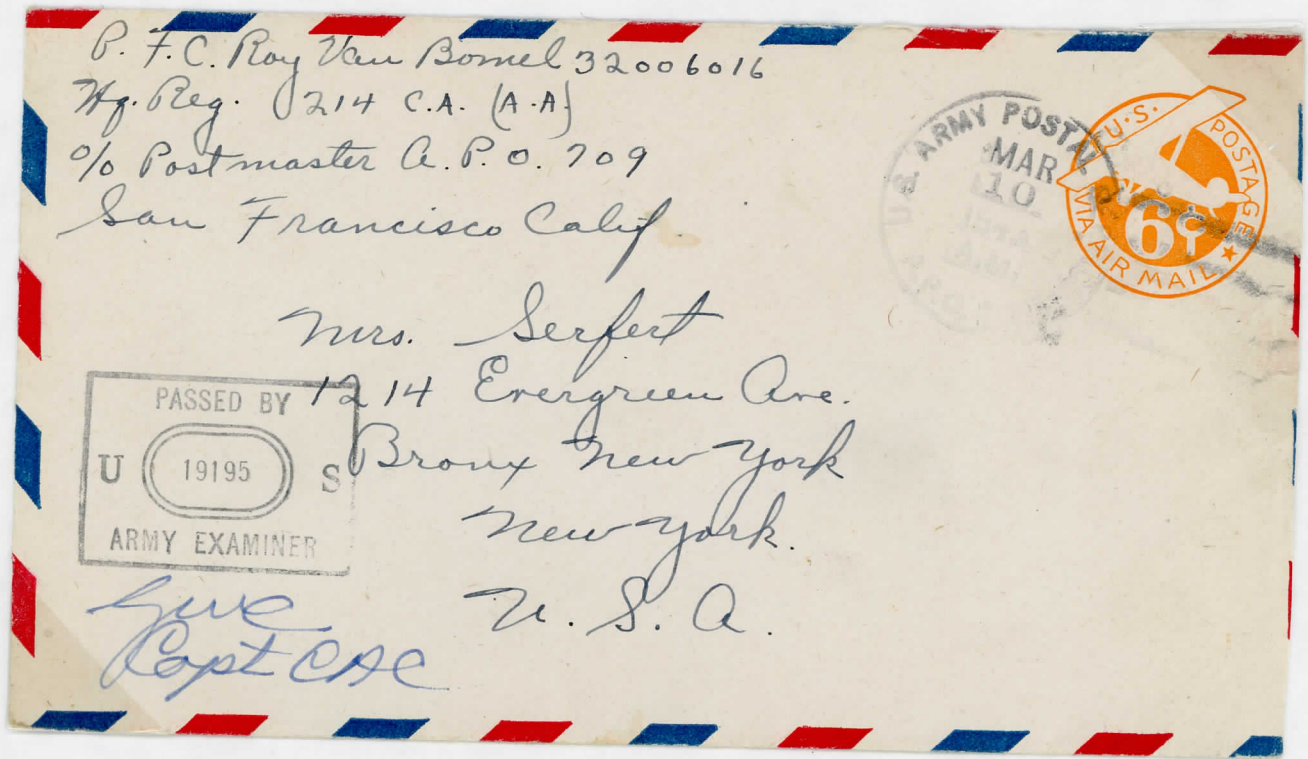 P. F. C. Roy Van Bomel 32006016
Hq. Reg. 214 C.A. (A.A)
c/o Postmaster A. P. O. 709
San Francisco Calif.
U.S. ARMY POSTAL
MAR
10
U.S. POSTAGE
6¢
VIA AIR MAIL
Mrs. Serfert
1214 Evergreen Ave.
Bronx New York
New York.
U. S. A.
PASSED BY
U 19195 S
ARMY EXAMINER
Capt CAC